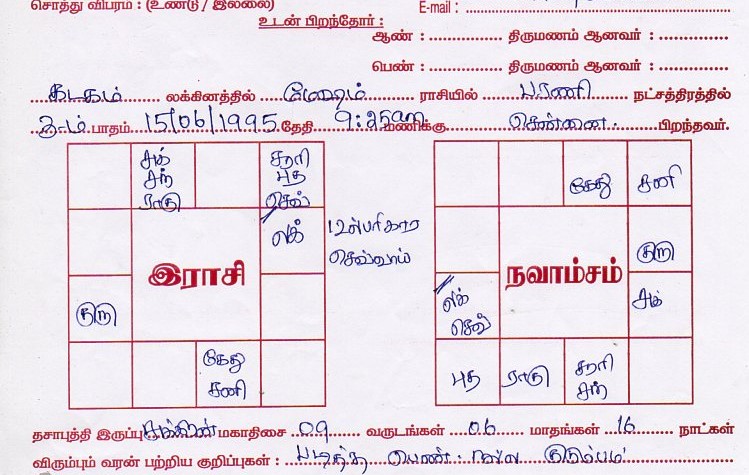 சொத்து விபரம் : (உண்டு / இல்லை)
E-mail :
உடன் பிறந்தோர் :
ஆண் : ............... திருமணம் ஆனவர் : ...............
பெண் : ............... திருமணம் ஆனவர் : ...............
கடகம் லக்கினத்தில் மேஷம் ராசியில் பரணி நட்சத்திரத்தில்
3-ம் பாதம் 15/06/1995 தேதி 9:25am மணிக்கு சென்னை பிறந்தவர்.
சுக் சூரி கேது சனி
சந் புத
ராகு செவ்
லக் பரிகார குரு
செவ்வாய்
இராசி நவாம்சம்
குரு லக் சுக்
செவ்
கேது புத ராகு சூரி
சனி சந்
தசாபுத்தி இருப்பு சுக்கிரன் மகாதிசை 09 வருடங்கள் 06 மாதங்கள் 16 நாட்கள்
விரும்பும் வரன் பற்றிய குறிப்புகள் : படித்த பெண். நல்ல குடும்பம்